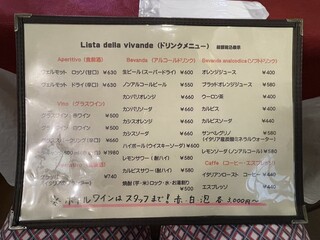 Lista della vivande (ドリンクメニュー)
Aperitivo (食前酒)
ヴェルモット ロッソ(甘口) ¥630
ヴェルモット ドライ(辛口) ¥630
Vino (グラスワイン)
ワイン ¥500
ワイン ¥500
Bevanda (アルコールドリンク)
生ビール(スーパードライ) ¥600
ノンアルコールビール ¥550
カンパリオレンジ ¥660
カンパリソーダ ¥660
カシスオレンジ ¥660
カシスソーダ ¥660
ハイボール(ウイスキーソーダ) ¥600
レモンサワー(酎ハイ) ¥550
カルピスサワー(酎ハイ) ¥550
焼酎(芋・米)ロック・水・お湯割り ¥500
Bevanda analcolica (ソフトドリンク)
オレンジジュース ¥400
ブラッドオレンジジュース ¥580
ウーロン茶 ¥400
カルピス ¥400
カルピスソーダ ¥440
サンペレグリノ ¥640
(イタリア産炭酸ミネラルウォーター)
レモンソーダ(ノンアルコール) ¥580
Caffe (コーヒー エスプレッソ)
イタリアンロースト コーヒー ¥440
エスプレッソ ¥440
ボトルワインはスタッフまで! 赤・白・泡 各3,000円〜